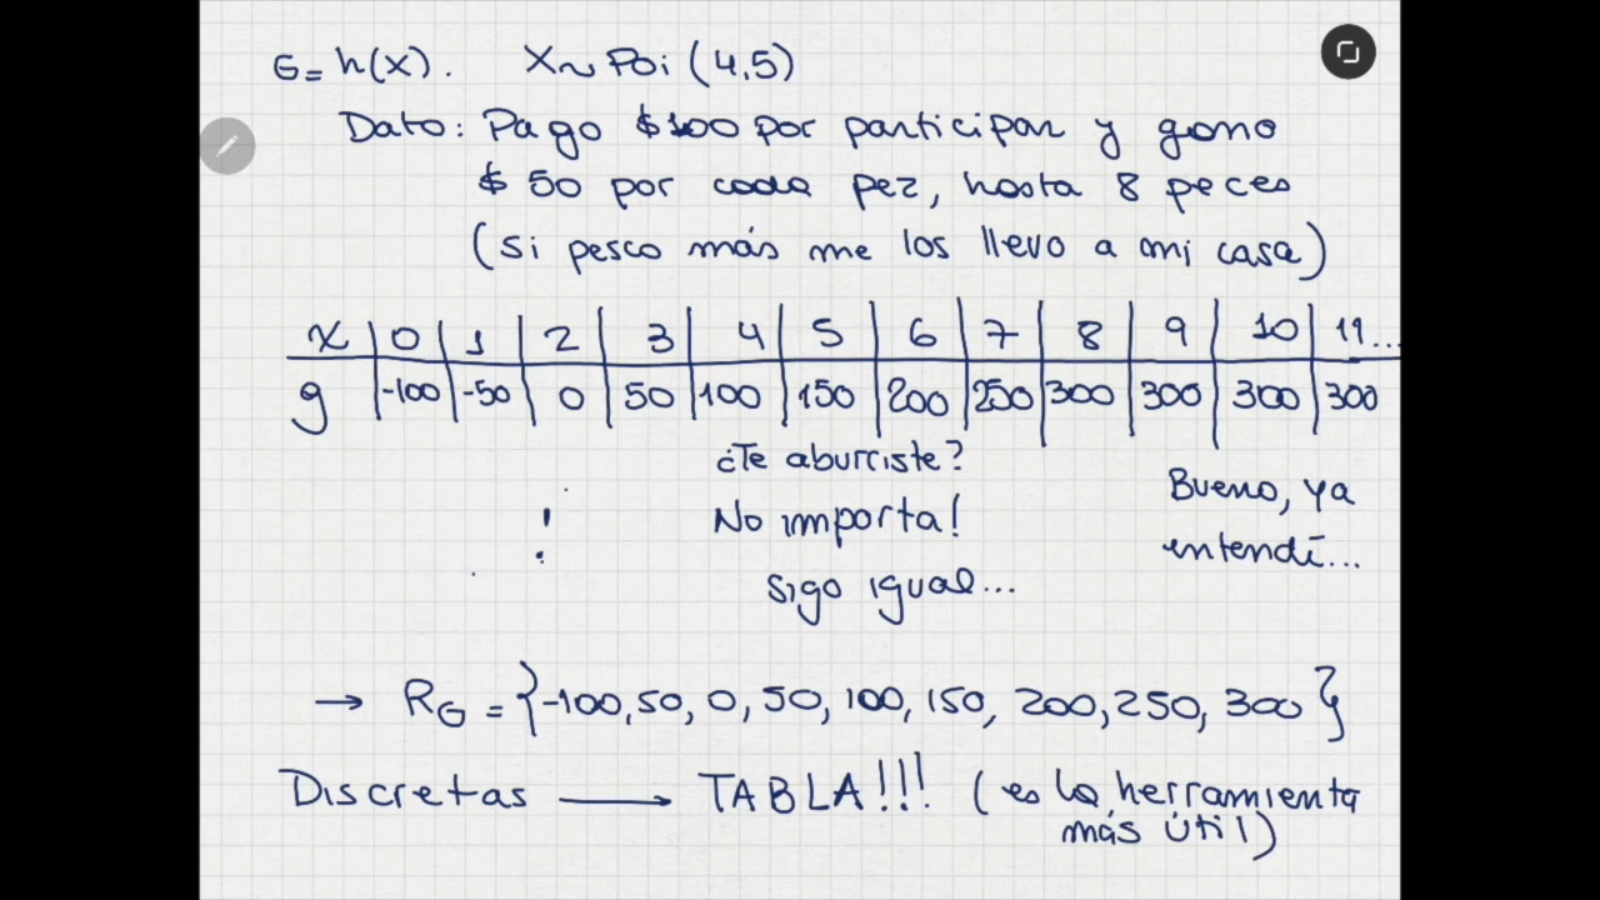 G = h(X). X ~ Poi (4,5)
Dato: Pago $100 por participar y gano
$ 50 por cada pez, hasta 8 peces
(si pesco más me los llevo a mi casa)
x | 0 | 1 | 2 | 3 | 4 | 5 | 6 | 7 | 8 | 9 | 10 | 11...
g | -100 | -50 | 0 | 50 | 100 | 150 | 200 | 250 | 300 | 300 | 300 | 300
¿Te aburriste?
No importa!
Sigo igual...
Bueno, ya
entendí...
!
→ RG = {-100, 50, 0, 50, 100, 150, 200, 250, 300}
Discretas → TABLA!!! (es la herramienta
más útil)